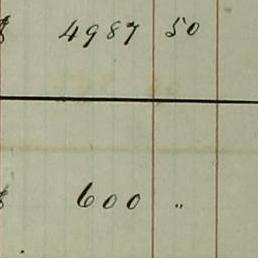 $ 4987 50
$ 600 "